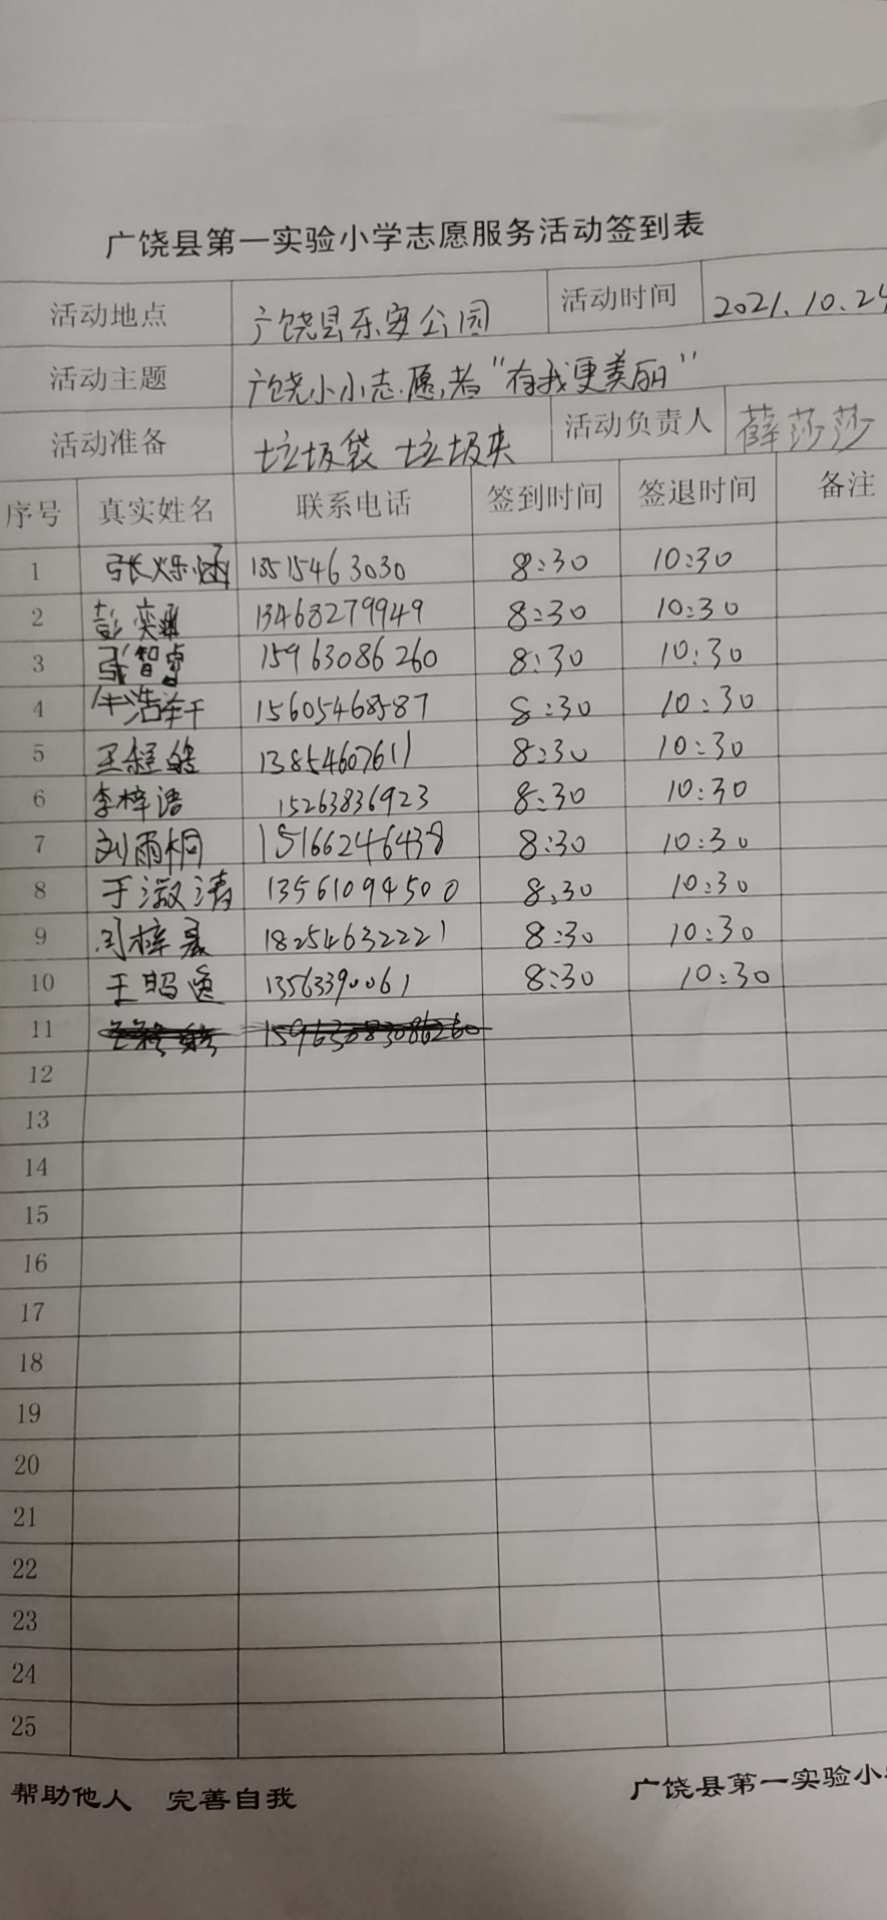 广饶县第一实验小学志愿服务活动签到表
活动地点 广饶县乐安公园 活动时间 2021.10.24
活动主题 广饶小小志愿者“有我更美丽”
活动准备 垃圾袋 垃圾夹 活动负责人 薛莎莎
序号 真实姓名 联系电话 签到时间 签退时间 备注
1 张烁涵 13515463030 8:30 10:30
2 彭奕 13468279949 8:30 10:30
3 张智卓 15963086260 8:30 10:30
4 牛浩轩 15605468587 8:30 10:30
5 王程皓 13854607611 8:30 10:30
6 李梓语 15263836923 8:30 10:30
7 刘雨桐 15166246438 8:30 10:30
8 于潋清 13561094500 8:30 10:30
9 周梓晨 18254632221 8:30 10:30
10 王昭逸 13563390061 8:30 10:30
11
12
13
14
15
16
17
18
19
20
21
22
23
24
25
帮助他人 完善自我 广饶县第一实验小